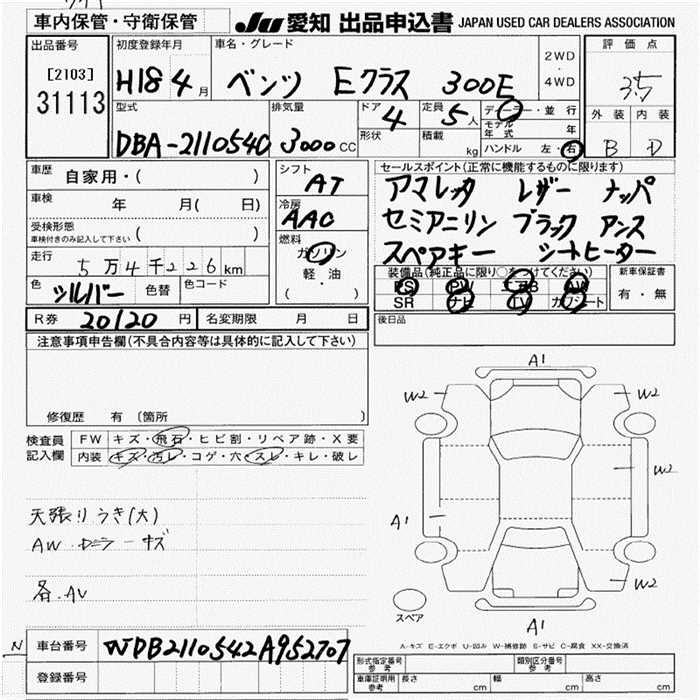 車内保管・守衛保管
JU 愛知 出品申込書 JAPAN USED CAR DEALERS ASSOCIATION
出品番号 初度登録年月 車名・グレード 2WD・4WD 評価点
[2103] 31113 H18 4月 ベンツ Eクラス 300E 3.5
型式 排気量 ドア 4 定員 5人 ディーラー・並行 外装 内装
DBA-211054C 3000CC 形状 積載 kg モデル年式 年 B D
ハンドル 左・右
車歴 自家用・( ) シフト AT セールスポイント(正常に機能するものに限ります)
車検 年 月( 日) 冷房 AAC アマレッタ レザー ナッパ
受検形態 車検付きのみ記入して下さい ( ) 燃料 ガソリン セミアニリン ブラック アンス
走行 5万4千226km 軽・油 スペアキー シートヒーター
色 シルバー 色替 色コード ( ・ ) 装備品(純正品に限り○をつけてください) 新車保証書
PS PW エアB AW 有・無
SR ナビ TV カワシート
R券 20120円 名変期限 月 日 後日品
注意事項申告欄(不具合内容等は具体的に記入して下さい)
修復歴 有 〔箇所 〕
検査員記入欄 FW キズ・飛石・ヒビ割・リペア跡・X要
内装 キズ・汚レ・コゲ・穴・スレ・キレ・破レ
A1
W2 W2
W2
A1
W2
A1
スペア
天張りうき(大)
AW
各.AV
A-キズ E-エクボ U-凹ミ W-補修跡 S-サビ C-腐食 XX-交換済
N 車台番号 WDB2110542A952707
登録番号
形式指定番号 参考 類別区分番号 参考
車庫証明用 参考 長さ cm 幅 cm 高さ cm